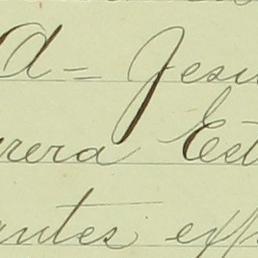 A= Jesu
rera Est
antes exp